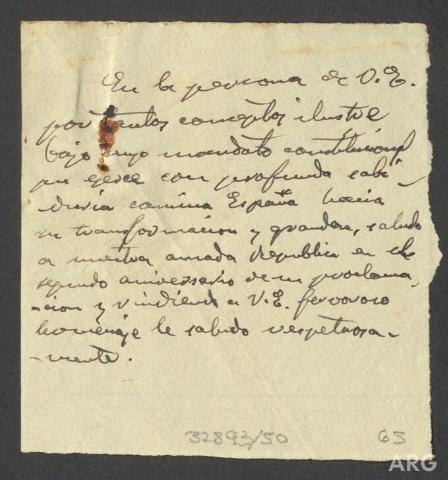 En la persona de V.E.
por tantos conceptos ilustre
bajo cuyo mandato constitucional
que ejerce con profunda sabi
duria camina España hacia
su transformacion y grandeza, saludo
a nuestra amada Republica en el
segundo aniversario de su proclama
-cion y rindiendo a V.E. fervoroso
homenaje le saludo respetuosa-
-mente.
32893/50 65
ARG